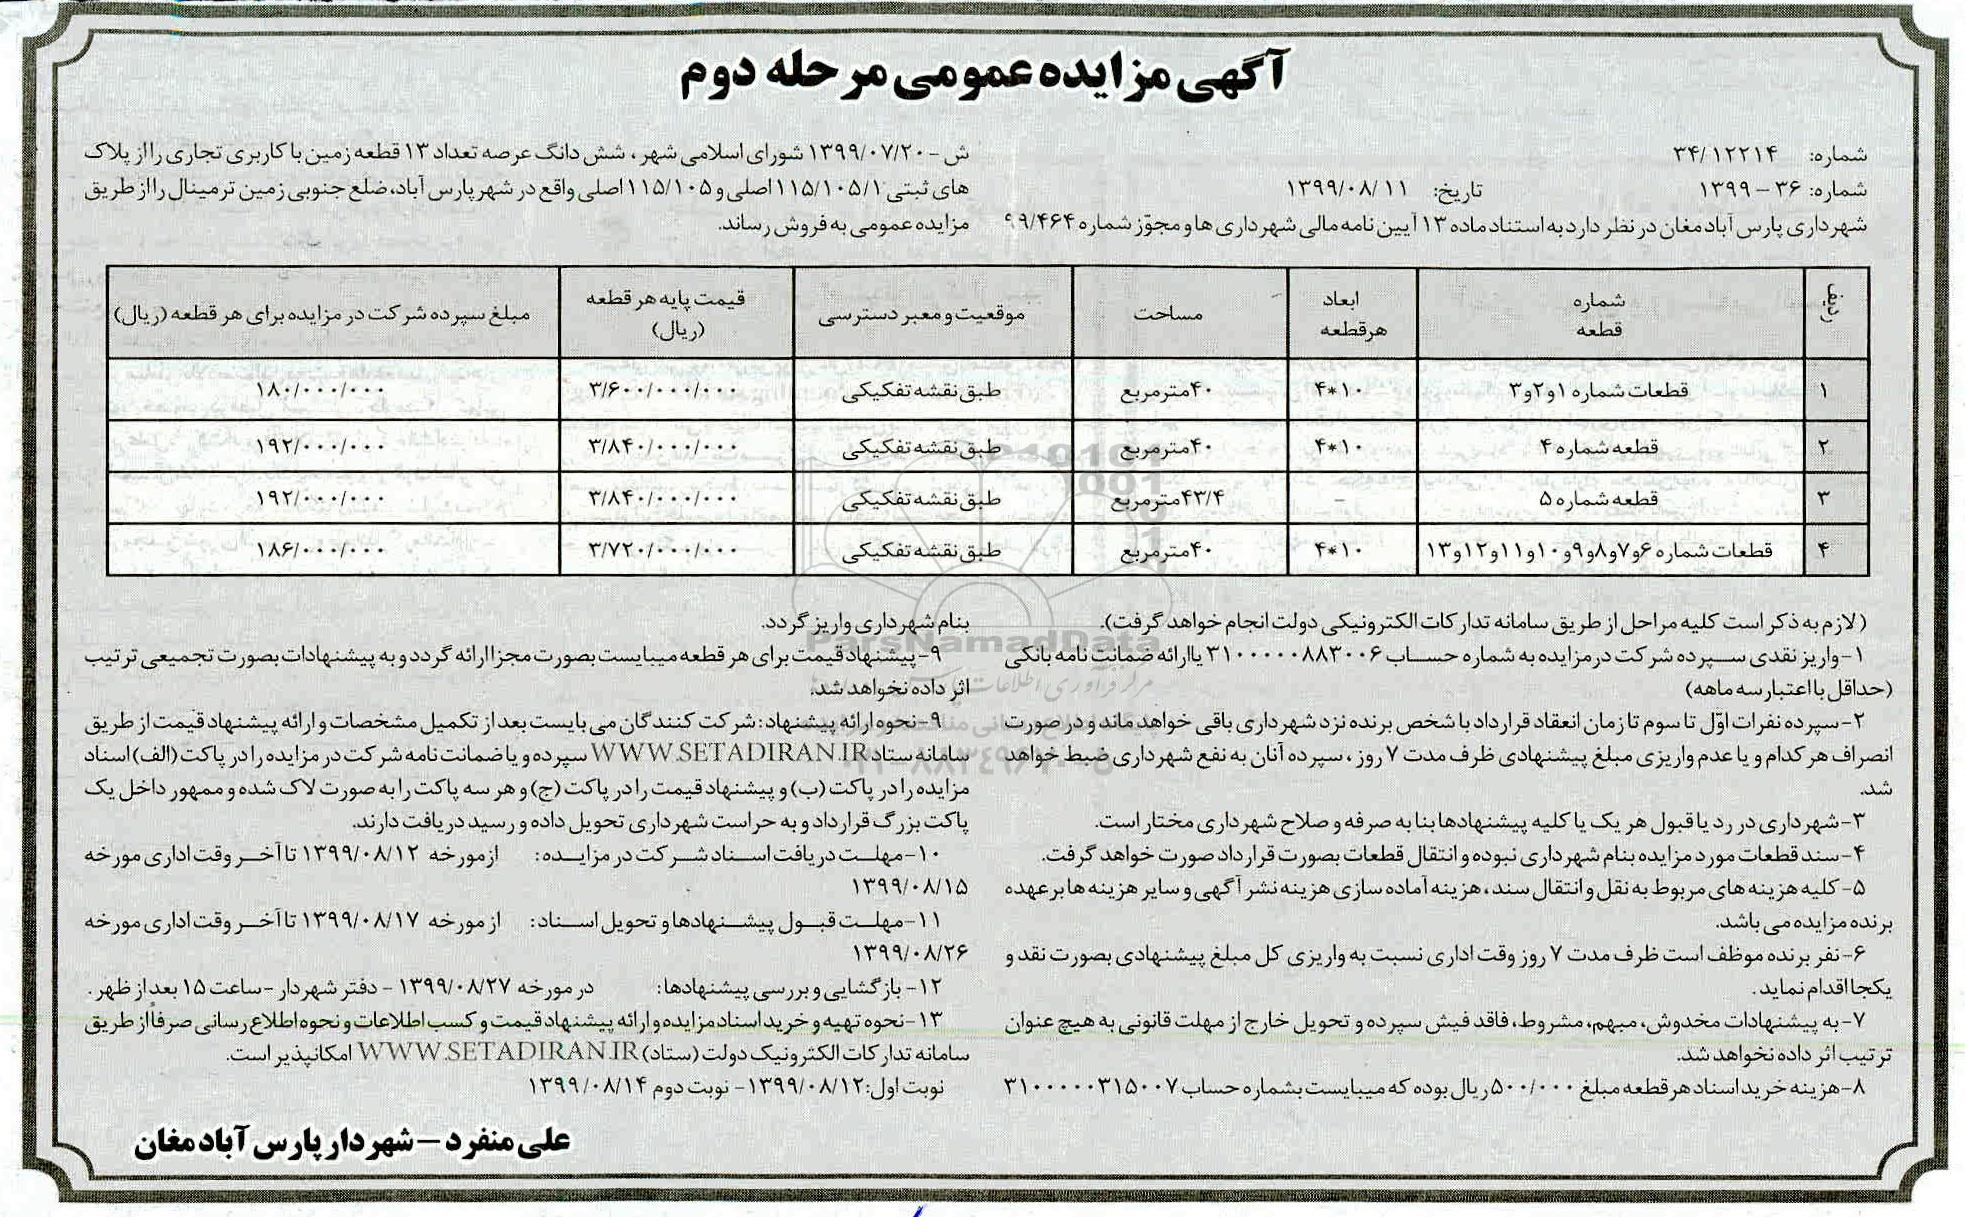 آگهی مزایده عمومی مرحله دوم
شماره: ۳۴/۱۲۲۱۴
شماره: ۳۶ - ۱۳۹۹ تاریخ: ۱۳۹۹/۰۸/۱۱
شهرداری پارس آباد مغان در نظر دارد به استناد ماده ۱۳ آیین نامه مالی شهرداری ها و مجوّز شماره ۹۹/۴۶۴
ش - ۱۳۹۹/۰۷/۲۰ شورای اسلامی شهر، شش دانگ عرصه تعداد ۱۳ قطعه زمین با کاربری تجاری را از پلاک
های ثبتی ۱۱۵/۱۰۵/۱ اصلی و ۱۱۵/۱۰۵ اصلی واقع در شهر پارس آباد، ضلع جنوبی زمین ترمینال را از طریق
مزایده عمومی به فروش رساند.
ردیف | شماره قطعه | ابعاد هرقطعه | مساحت | موقعیت و معبر دسترسی | قیمت پایه هر قطعه (ریال) | مبلغ سپرده شرکت در مزایده برای هر قطعه (ریال)
۱ | قطعات شماره ۱و۲و۳ | ۴*۱۰ | ۴۰مترمربع | طبق نقشه تفکیکی | ۳/۶۰۰/۰۰۰/۰۰۰ | ۱۸۰/۰۰۰/۰۰۰
۲ | قطعه شماره ۴ | ۴*۱۰ | ۴۰مترمربع | طبق نقشه تفکیکی | ۳/۸۴۰/۰۰۰/۰۰۰ | ۱۹۲/۰۰۰/۰۰۰
۳ | قطعه شماره ۵ | - | ۴۳/۴مترمربع | طبق نقشه تفکیکی | ۳/۸۴۰/۰۰۰/۰۰۰ | ۱۹۲/۰۰۰/۰۰۰
۴ | قطعات شماره ۶و۷و۸و۹و۱۰و۱۱و۱۲و۱۳ | ۴*۱۰ | ۴۰مترمربع | طبق نقشه تفکیکی | ۳/۷۲۰/۰۰۰/۰۰۰ | ۱۸۶/۰۰۰/۰۰۰
(لازم به ذکر است کلیه مراحل از طریق سامانه تدارکات الکترونیکی دولت انجام خواهد گرفت).
۱-واریز نقدی سپرده شرکت در مزایده به شماره حساب ۳۱۰۰۰۰۰۸۸۳۰۰۶ یا ارائه ضمانت نامه بانکی
(حداقل با اعتبار سه ماهه)
۲-سپرده نفرات اوّل تا سوم تا زمان انعقاد قرارداد با شخص برنده نزد شهرداری باقی خواهد ماند و در صورت
انصراف هر کدام و یا عدم واریزی مبلغ پیشنهادی ظرف مدت ۷ روز، سپرده آنان به نفع شهرداری ضبط خواهد
شد.
۳-شهرداری در رد یا قبول هر یک یا کلیه پیشنهادها بنا به صرفه و صلاح شهرداری مختار است.
۴-سند قطعات مورد مزایده بنام شهرداری نبوده و انتقال قطعات بصورت قرارداد صورت خواهد گرفت.
۵-کلیه هزینه های مربوط به نقل و انتقال سند، هزینه آماده سازی هزینه نشر آگهی و سایر هزینه ها بر عهده
برنده مزایده می باشد.
۶-نفر برنده موظف است ظرف مدت ۷ روز وقت اداری نسبت به واریزی کل مبلغ پیشنهادی بصورت نقد و
یکجا اقدام نماید.
۷-به پیشنهادات مخدوش، مبهم، مشروط، فاقد فیش سپرده و تحویل خارج از مهلت قانونی به هیچ عنوان
ترتیب اثر داده نخواهد شد.
۸-هزینه خرید اسناد هر قطعه مبلغ ۵۰۰/۰۰۰ ریال بوده که میبایست بشماره حساب ۳۱۰۰۰۰۰۳۱۵۰۰۷
بنام شهرداری واریز گردد.
۹-پیشنهاد قیمت برای هر قطعه میبایست بصورت مجزا ارائه گردد و به پیشنهادات بصورت تجمیعی ترتیب
اثر داده نخواهد شد.
۹-نحوه ارائه پیشنهاد: شرکت کنندگان می بایست بعد از تکمیل مشخصات و ارائه پیشنهاد قیمت از طریق
سامانه ستاد WWW.SETADIRAN.IR سپرده و یا ضمانت نامه شرکت در مزایده را در پاکت (الف) اسناد
مزایده را در پاکت (ب) و پیشنهاد قیمت را در پاکت (ج) و هر سه پاکت را به صورت لاک شده و ممهور داخل یک
پاکت بزرگ قرارداد و به حراست شهرداری تحویل داده و رسید دریافت دارند.
۱۰-مهلت دریافت اسناد شرکت در مزایده: از مورخه ۱۳۹۹/۰۸/۱۲ تا آخر وقت اداری مورخه
۱۳۹۹/۰۸/۱۵
۱۱-مهلت قبول پیشنهادها و تحویل اسناد: از مورخه ۱۳۹۹/۰۸/۱۷ تا آخر وقت اداری مورخه
۱۳۹۹/۰۸/۲۶
۱۲- بازگشایی و بررسی پیشنهادها: در مورخه ۱۳۹۹/۰۸/۲۷ - دفتر شهردار - ساعت ۱۵ بعد از ظهر.
۱۳-نحوه تهیه و خرید اسناد مزایده و ارائه پیشنهاد قیمت و کسب اطلاعات و نحوه اطلاع رسانی صرفاً از طریق
سامانه تدارکات الکترونیک دولت (ستاد) WWW.SETADIRAN.IR امکانپذیر است.
نوبت اول: ۱۳۹۹/۰۸/۱۲- نوبت دوم ۱۳۹۹/۰۸/۱۴
علی منفرد – شهردار پارس آباد مغان
ParsNamadData